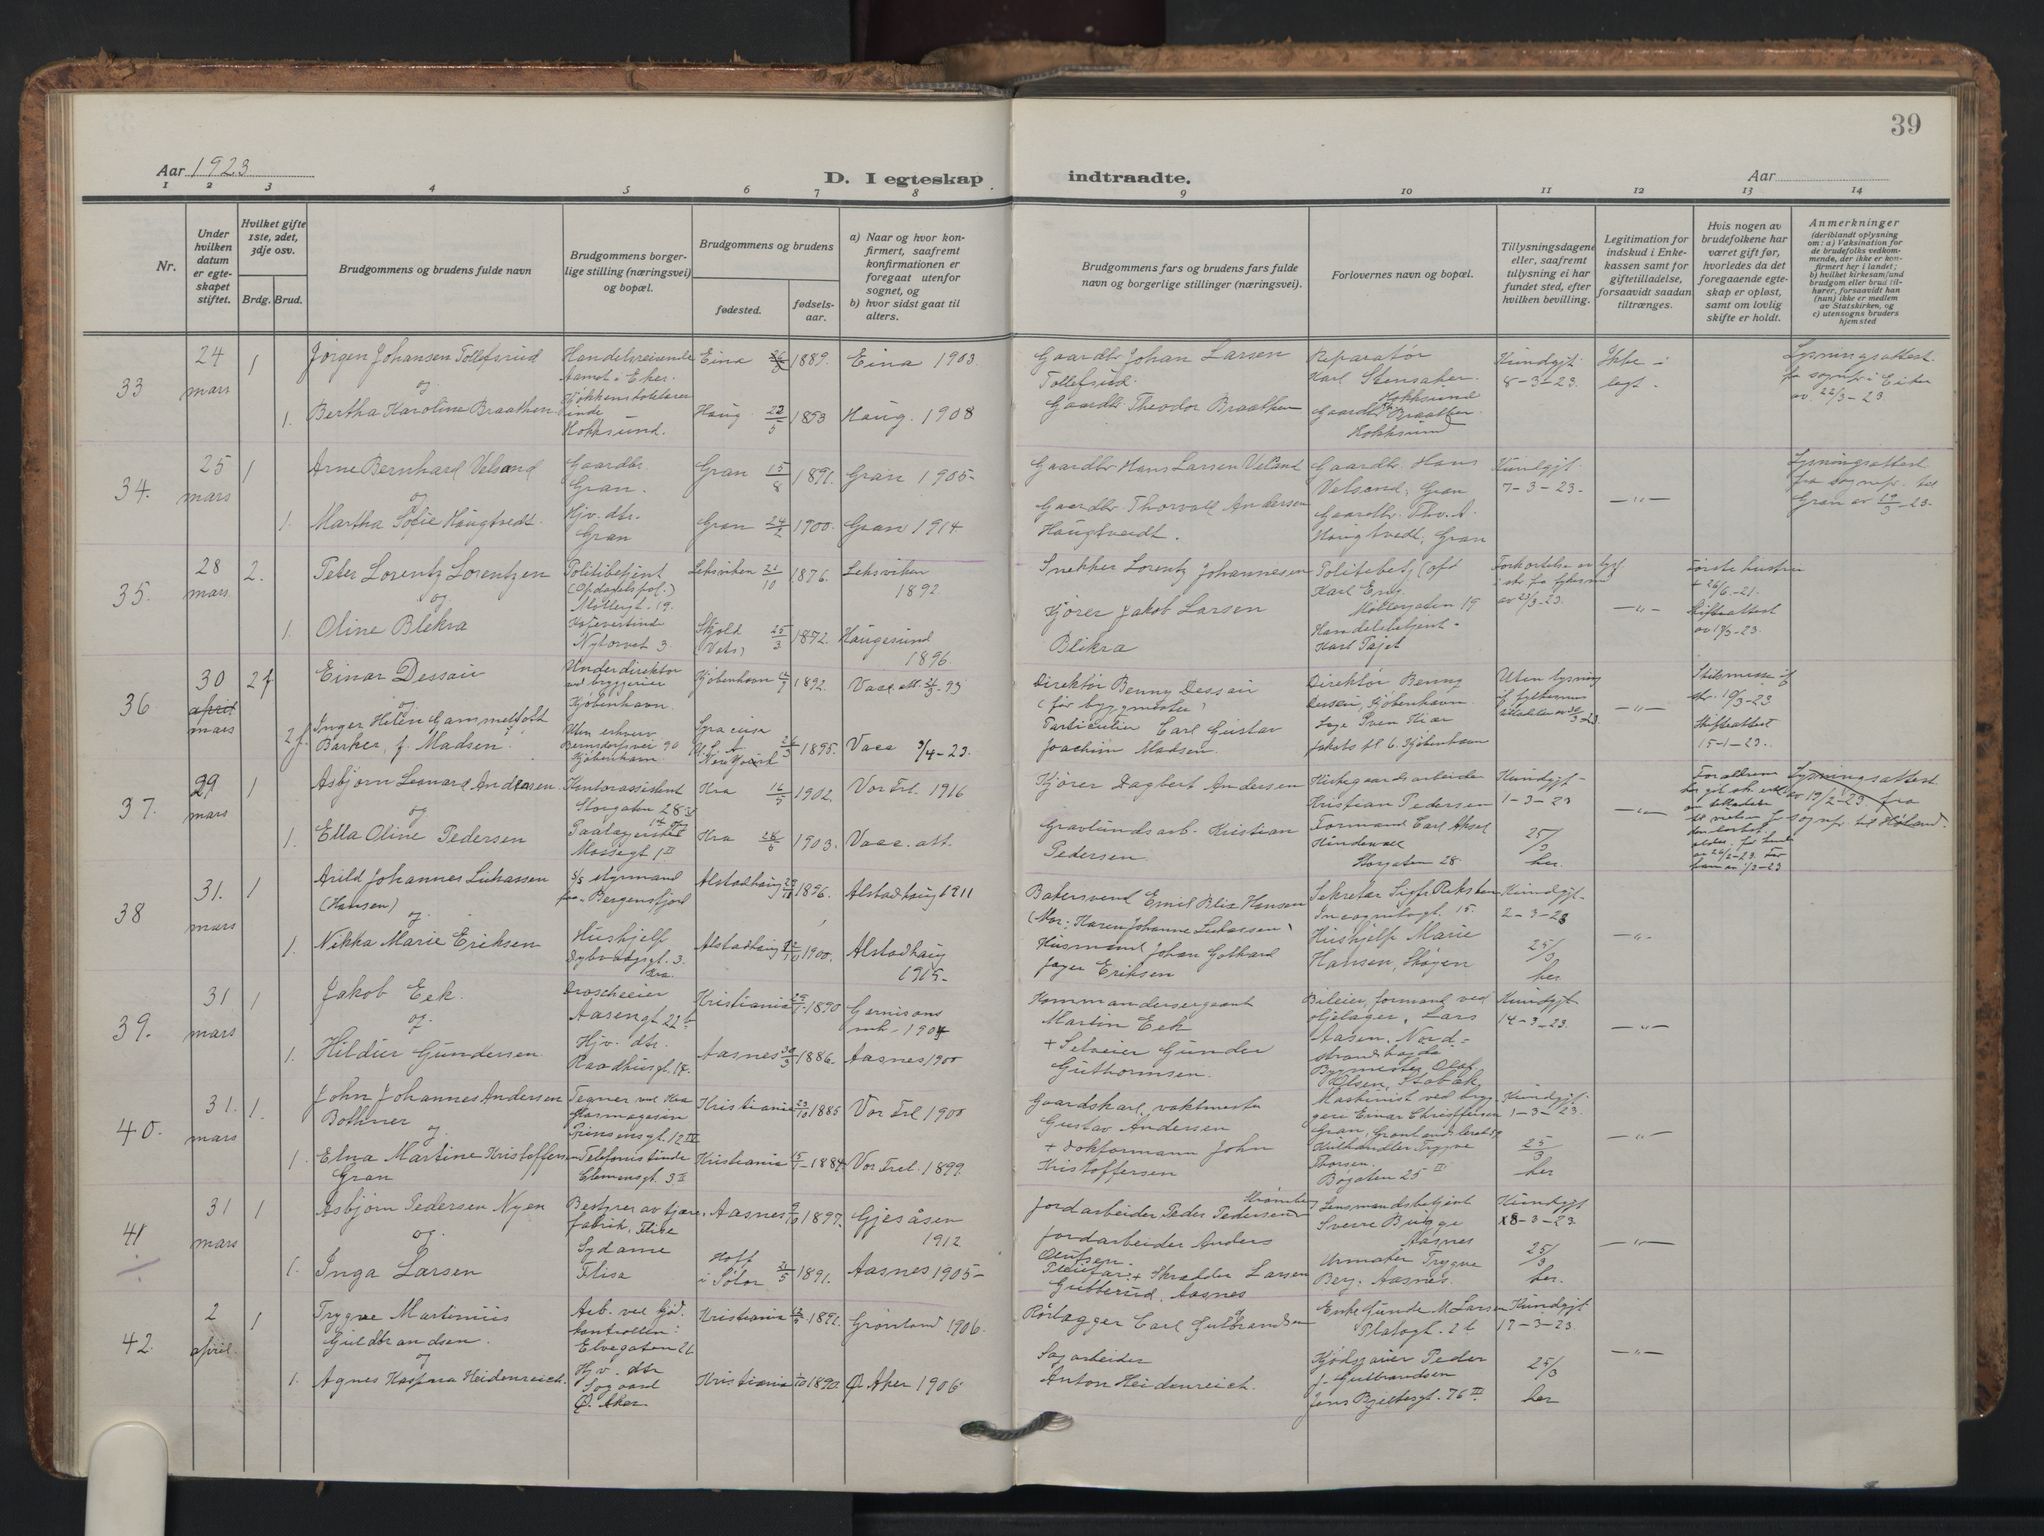 39
Aar 1923
D. I egteskap indtraadte.
Aar
1 2 3 4 5 6 7 8 9 10 11 12 13 14
Nr.
Under hvilken datum er egteskapet stiftet.
Hvilket gifte 1ste, 2det, 3dje osv.
Brdg. Brud.
Brudgommens og brudens fulde navn
Brudgommens borgerlige stilling (næringsvei) og bopæl.
Brudgommens og brudens
fødested.
fødselsaar.
a) Naar og hvor konfirmert, saafremt konfirmationen er foregaat utenfor sognet, og
b) hvor sidst gaat til alters.
Brudgommens fars og brudens fars fulde navn og borgerlige stillinger (næringsvei).
Forlovernes navn og bopæl.
Tillysningsdagene eller, saafremt tillysning ei har fundet sted, efter hvilken bevilling.
Legitimation for indskud i Enkekassen samt for giftetilladelse, forsaavidt saadan tiltrænges.
Hvis nogen av brudefolkene har været gift før, hvorledes da det foregaaende egteskap er opløst, samt om lovlig skifte er holdt.
Anmerkninger
(deriblandt oplysning om: a) Vaksination for de brudefolks vedkommende, der ikke er konfirmert her i landet; b) hvilket kirkesamfund brudgom eller brud tilhører, forsaavidt han (hun) ikke er medlem av Statskirken, og c) utensogns bruders hjemsted
33
24 mars
1
Jørgen Johansen Tollefsrud
og
1. Bertha Karoline Braathen
Handelsreisende
Hokksund.
Eina 1889. Eina 1903.
Haug 22/5 1853 Haug. 1908
Gaardbr. Johan Larsen
Tollefsrud.
Gaardbr. Theodor Braathen
Reparatør
Karl Stensaker
Hokksund
Gaardbr. Braathen
Hokksund
Kundgjt.
8-3-23.
Ikke
Lysningsattest
av 22/3-23.
34.
25 mars
1
Arne Bernhard Velsand
og
1. Martha Sofie Haugtvedt.
Gaardbr.
Gran.
Hjv. dtr.
Gran
Gran 15/8 1891. Gran 1905-
Gran 24/2 1900. Gran 1914
Gaardbr Hans Larsen Velsand
Gaardbr. Thorvald Andersen
Haugtveidt.
Gaardbr. Hans
Velsand, Gran
Gaardbr. Thv. A.
Haugtvedt, Gran
Kundgjt.
7-3-23.
-"-
Lysningsattest
fra sognepr. til
Gran av 19/3-23.
35.
28 mars
2.
Peter Lorentz Lorentzen
og
1. Oline Blikra
Politibetjent
(Opdagelsespol.)
Møllergt. 19.
Nytorvet 3
Leksviken 21/10 1876. Leksviken
1892.
Skjold
(Vats) 25/3 1872. Haugesund
1896.
Snekker Lorentz Johannesen
Kjører Jakob Larsen
Blikra
Politibetj. (opd
Karl Eng
Møllergaten 19
Handelsbetjent
Karl Tajet
av 23/3-23.
-"-
Første hustru
+ 26/6-21.
Skifteattest
av 17/3-23.
36
30 april mars
2
Einar Dessau
og
Inger Helen Gammeltoft
Barker, f. Madsen.
Underdirektør
ved bryggerier
Kjøbenhavn.
Uten erhverv
Bernstorfsvei 90
Kjøbenhavn.
Kjøbenhavn 1892.
Syracuse
U.S.A.
New York 1895. Vacc 3/4-23.
Direktør Benny Dessau
(før bygmester)
Particulier Carl Gustav
Joachim Madsen.
Direktør Benny
Dessau, Kjøbenhavn
Kjøbenhavn
Uten lysning
-"-
Skifteattest
15-1-23.
37.
29 mars
1
Asbjørn Leonard Andersen
og
1. Ella Oline Pedersen
Kontorassistent
Storgaten 28
Mossegt 1 II
Kra 16/5 1902. Vor Frl. 1916
Kra 1903. Vacc. att.
Kjører Dagbert Andersen
Gravlundsarb. Kristian
Pedersen.
Kirkegaardsarbeider
Kristian Pedersen
Formand Carl Aksel
Hindevall
Storgaten 28.
Kundgjt-
1-3-23
25/3
her.
-"-
Lysningsattest
av 19/2-23. fra
sognepr. til Høland.
38
31. mars
1
Arild Johannes Lukassen
(Hansen)
og
1. Nikka Marie Eriksen
S/S styrmand
Bergensfjord
Hushjelp
Dybvadsgt. 3.
Kra.
Alstadhaug 1896. Alstadhaug 1911
Alstadhaug 1900. Alstadhaug
1915-
Bakersvend Emil Blix Hansen
(Mor: Karen Johanne Lukassen)
Husmand Johan Gothard
Jager Eriksen
Sekretær Sigfr. Riksten
Incognitogt. 15.
Hushjelp Marie
Hansen, Skøyen
Kundgjt-
2-3-23
25/3
her
-"-
39.
31 mars
1
Jakob Eek.
og
1. Hildur Gundersen
Droscheeier
Aasengt 22 b
Hjv. dtr.
Raadhusgt. 17.
Kristiania 1890 Garnisons
mh - 1904
Aasnes 30/3 1886. Aasnes 1900
Kommandersergeant
Martin Eek
+ Selveier Gunder
Guthormsen.
Bileier, formand ved
oljelager, Lars
Aasen, Nord-
strandhøgda
Bygmester Olaf
Olsen, Stabæk
Kundgjt-
14-3-23.
-"-
40.
31. mars
1.
John Johannes Andersen
Bothner
og
1. Elna Martine Kristoffersen
Gran
Tegner ved Kra
Prinsensgt. 12 IV
Telefonistinde
Clemensgt. 3 II
Kristiania 23/10 1885 Vor Frl 1900
Kristiania 1884 Vor Frel. 1899.
Gaardskarl, vaktmester
Gustav Andersen
+ Dokformann John
Kristoffersen
Maskinist ved bryg-
geri Einar Christoffersen
Gran, Grønlandsleret 19
Kulhandler Trygve
Thorsen.
Bogaten 25 II
Kundgjt-
1-3-23.
25/3
her
-"-
41
31 mars
1
Asbjørn Pedersen Nyen
og.
1. Inga Larsen
Bestyrer av tjære-
fabrik, Flisa
Sydame
Flisa
Aasnes 9/10 1897. Gjesåsen
1912.
Hoff
i Solør 1891. Aasnes 1905-
Jordarbeider Peder Pedersen
Jordarbeider Anders
Skrædder Larsen
Gubberud, Aasnes
Lensmandsbetjent
Sverre Bugge
Aasnes
Urmaker Trygve
Berg, Aasnes.
Kundgjt
8-3-23.
25/3
her.
-"-
42.
2 april
1
Trygve Martinius
Guldbrandsen.
og
1. Agnes Kaspara Heidenreich.
Arb. ved kjød-
kontrollen:
Elvegaten 26
Hjv. dtr
Sogaard
Ø. Aker
Kristiania 1891. Grønland 1906.
Kristiania 1890. Ø. Aker 1906
Rørlægger Carl Gulbrandsen
Sagarbeider
Anton Heidenreich.
Enke Gunda M Larsen
Platogt. 26
Peder
Gulbrandsen
Jens Bjelkesgt. 76 III
Kundgjt-
17-3-23.
25/3
her
-"-